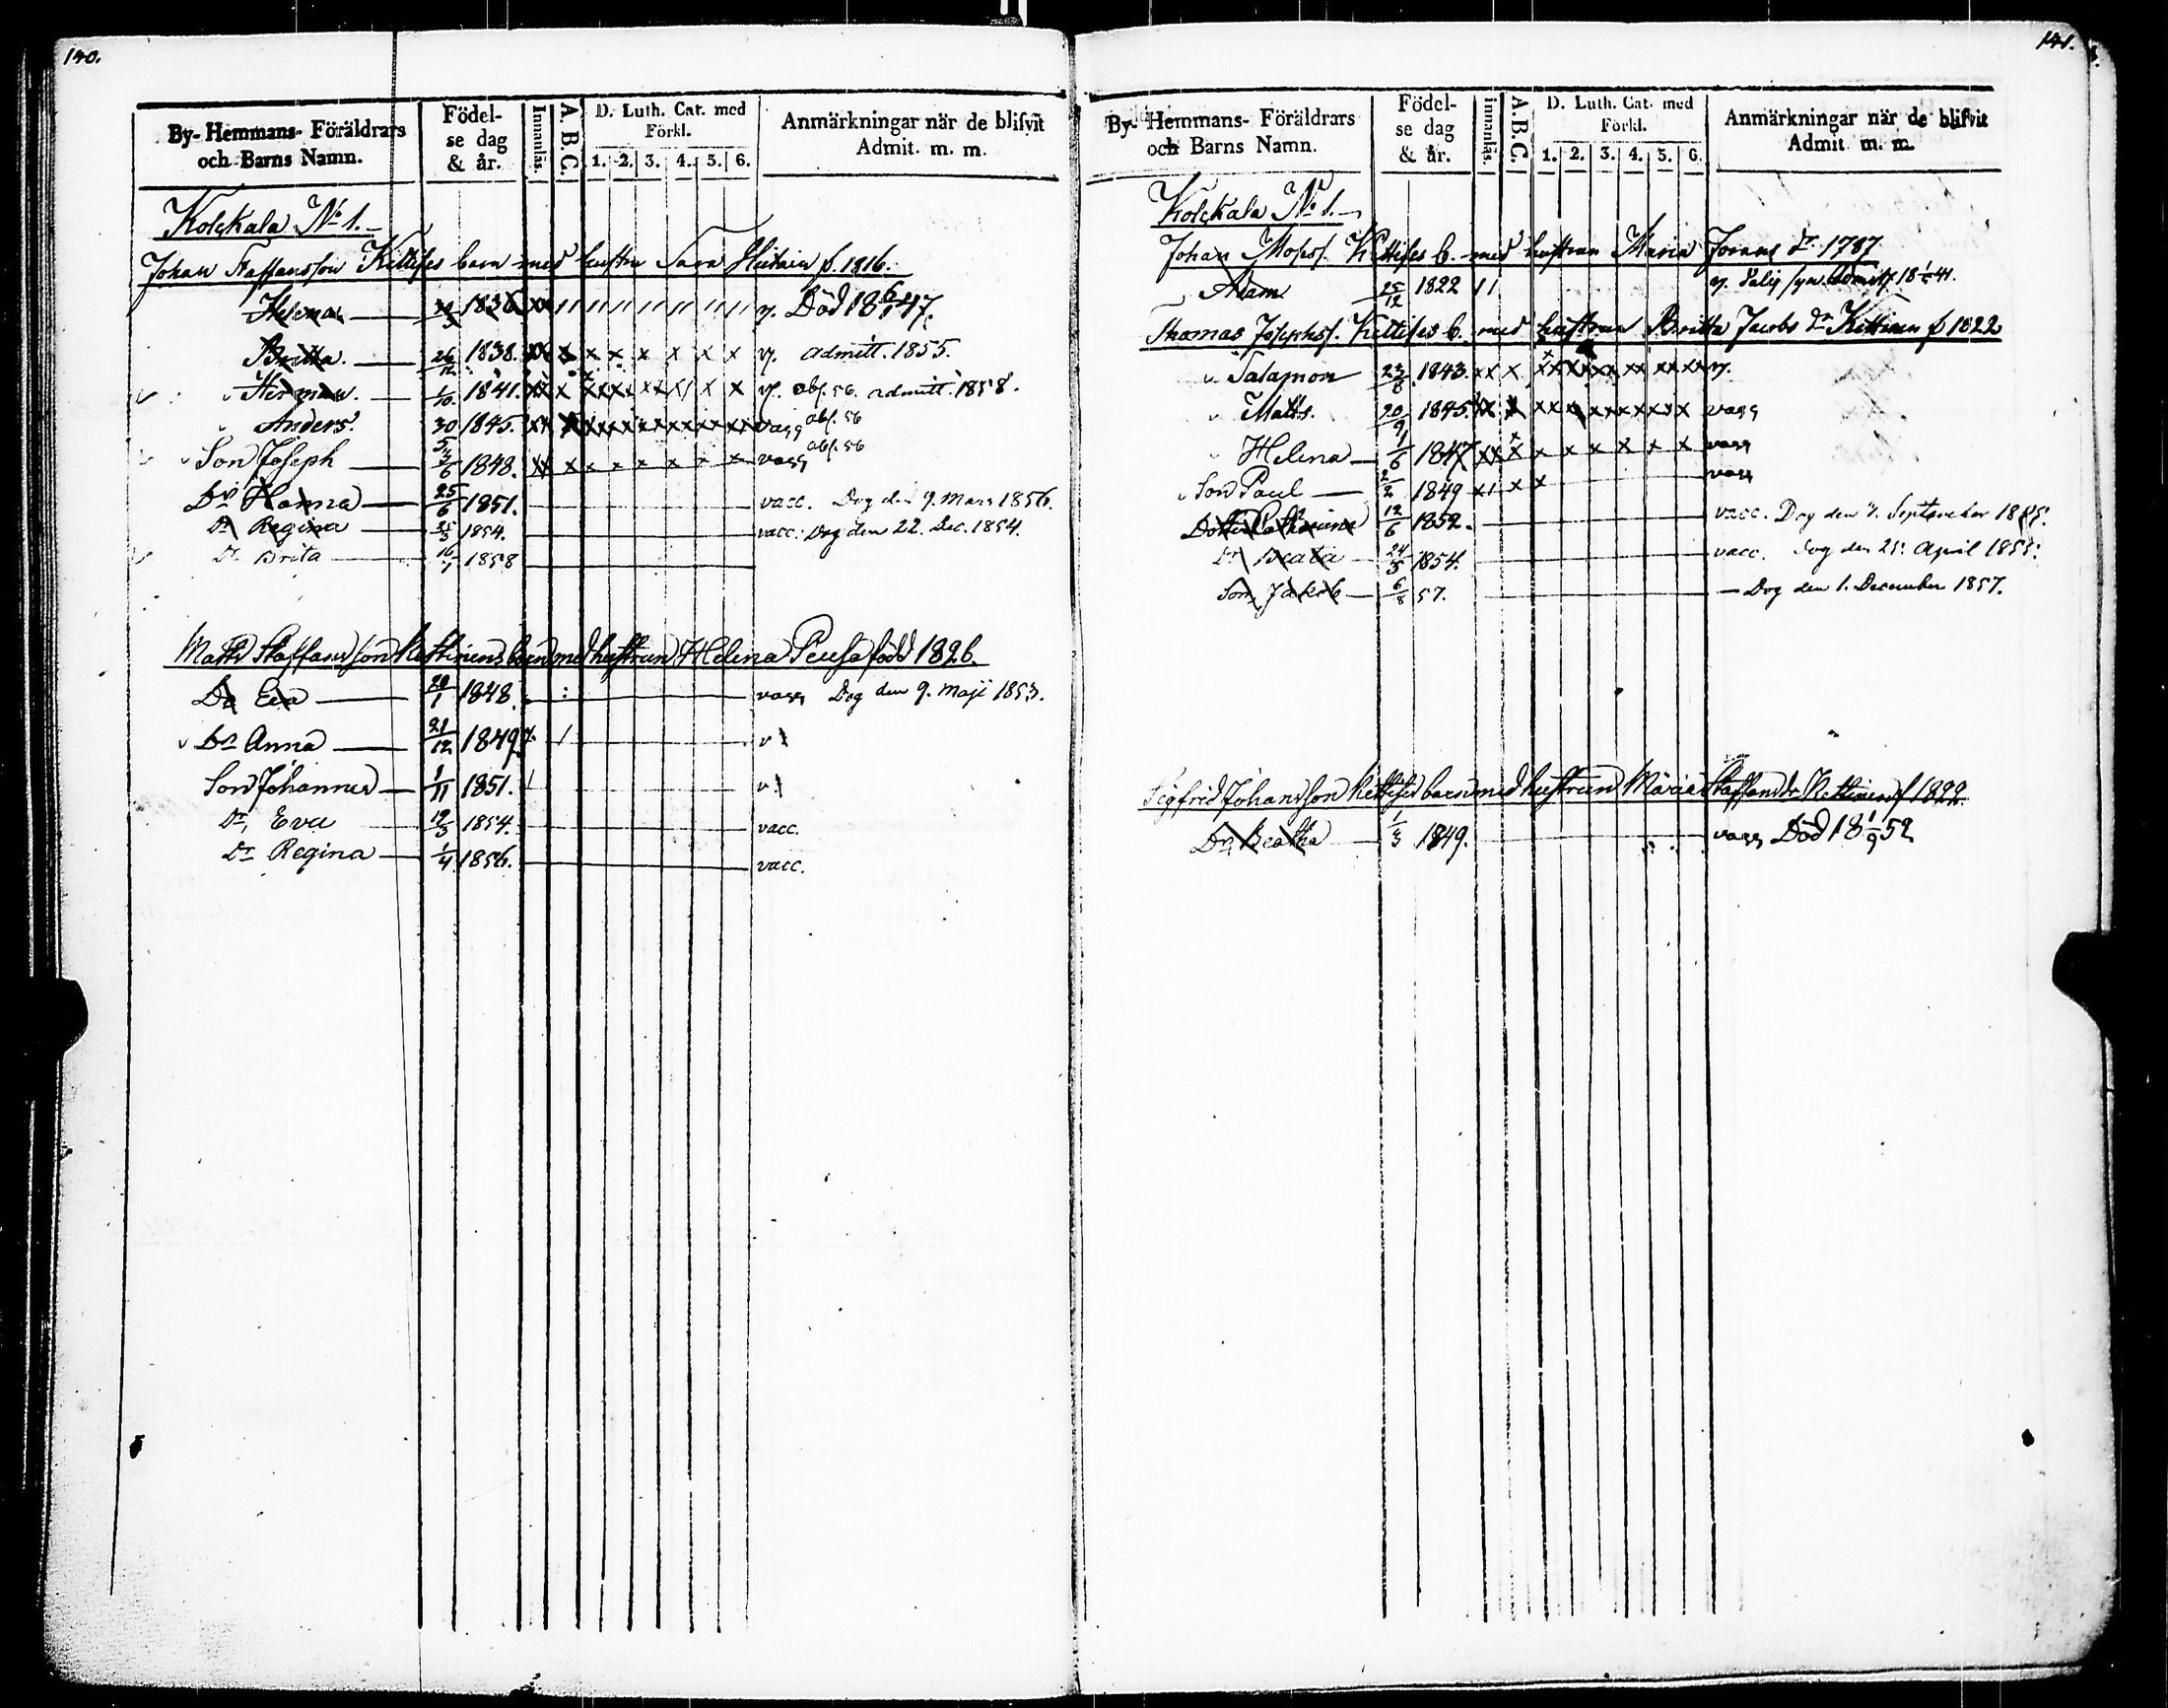 140.
By- Hemmans- Föräldrars och Barns Namn.
Födelse dag & år.
Innanläs.
A. B. C.
D. Luth. Cat. med Förkl.
1. 2. 3. 4. 5. 6.
Anmärkningar när de blifvit Admit. m. m.
Kolckala No 1.
Johan Staffansson Kettises barn med hustru Sara f. 1816.
Helena 1836 Död 18 6/1 47.
Britta. 26/12 1838. x x x x x x v. admitt. 1855.
Herman. 1/10. 1841. v. abs. 56. admitt. 1858.
Anders. 30/5 1845. vacc abs. 56
Son Joseph 3/6 1848. vacc abs. 56
Dr Hanna 25/6 1851. vacc. Dog den 9. Mars 1856.
Dr Regina 25/3 1854. vacc. Dog den 22. Dec. 1854.
Dr. Brita 16/1 1858
Matts Staffansson Kettinens barn med hustrun Helena Peusa född 1826.
Dr Eva 20/1 1848. vacc Dog den 9. Maji 1853.
Dr Anna 21/12 1849 v
Son Johannes 1/11 1851. v
Dr, Eva 12/3 1854. vacc.
Dr Regina 1/4 1856. vacc.
141.
By- Hemmans- Föräldrars och Barns Namn.
Födelse dag & år.
innanläs.
A. B. C.
D. Luth. Cat. med Förkl.
1. 2. 3. 4. 5. 6.
Anmärkningar när de blifvit Admit. m. m.
Kolckala No 1.
Johan Moses. Kettises b. med hustrun Maria Jorans dr. 1787
Adam 25/12 1822 11 v. admitt 18 41.
Thomas Josephs. Kettises b. med hustrun Britta Jacobs dr Kettinen f 1822
Salamon 23/8 1843. v.
Matts. 20/9 1845 vacc
Helena 1/6 1847 vacc
Son Paul 2/2 1849 vacc
Dotter Catharina 12/6 1852. vacc. Dog den 7. September 1855.
Dr Beata 24/5 1854. vacc. Dog den 21. April 1855.
Son, Jakob 6/8 57. Dog den 1. December 1857.
Sigfrid Johansson Kettises barn med hustrun Maria Staffans dr Kettinen f 1822.
Dr Beatha 1/3 1849. vacc Död 18 1/9 52